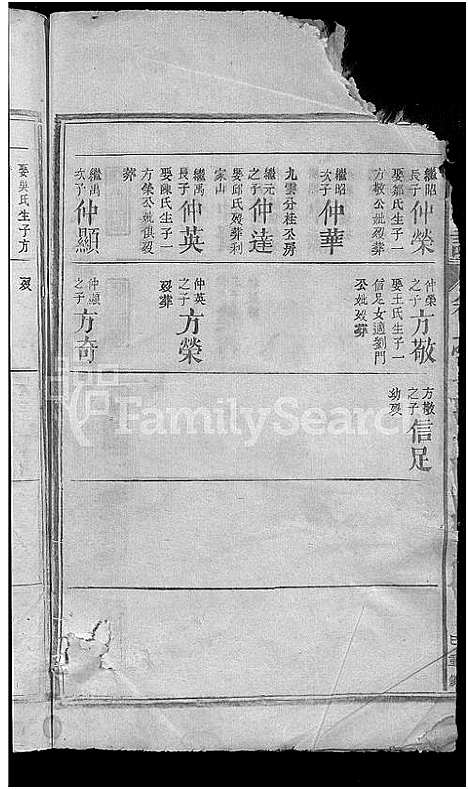 繼昭長子仲榮
娶鄒氏生子一
方敬公妣歿葬
繼昭次子仲華
九雲分桂公房
繼元之子仲達
娶邱氏歿葬利
家山
繼禹長子仲英
娶陳氏生子一
方榮公妣俱歿
葬
繼禹次子仲顯
仲榮之子方敬
娶王氏生子一
信足女適劉門
公妣歿葬
仲英之子方榮
歿葬
仲顯之子方奇
方敬之子信足
幼歿
娶吳氏生子方
歿
FamilySearch